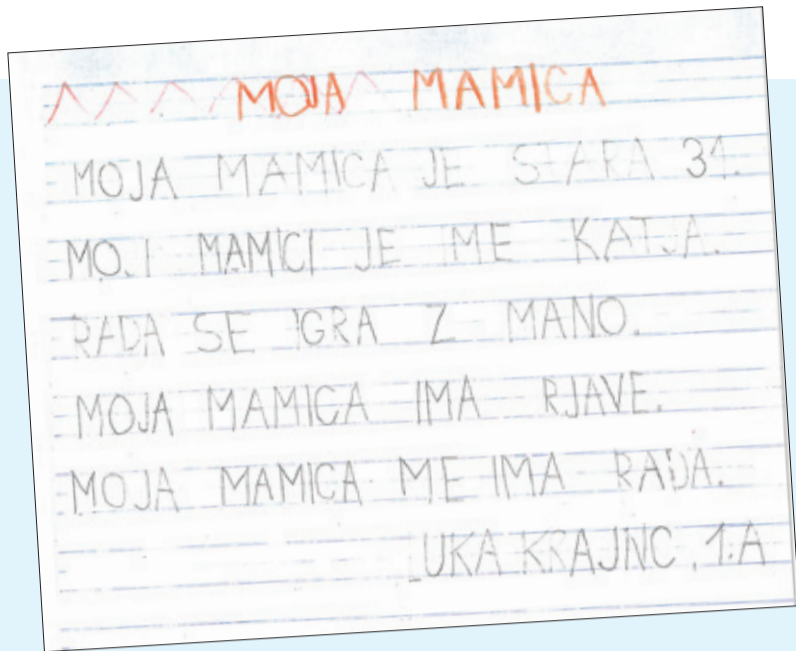 MOJA MAMICA
MOJA MAMICA JE STARA 31.
MOJI MAMICI JE ME KATJA.
RADA SE IGRA Z MANO.
MOJA MAMICA IMA RJAVE.
MOJA MAMICA ME IMA RADA.
LUKA KRAJNC, 1.A